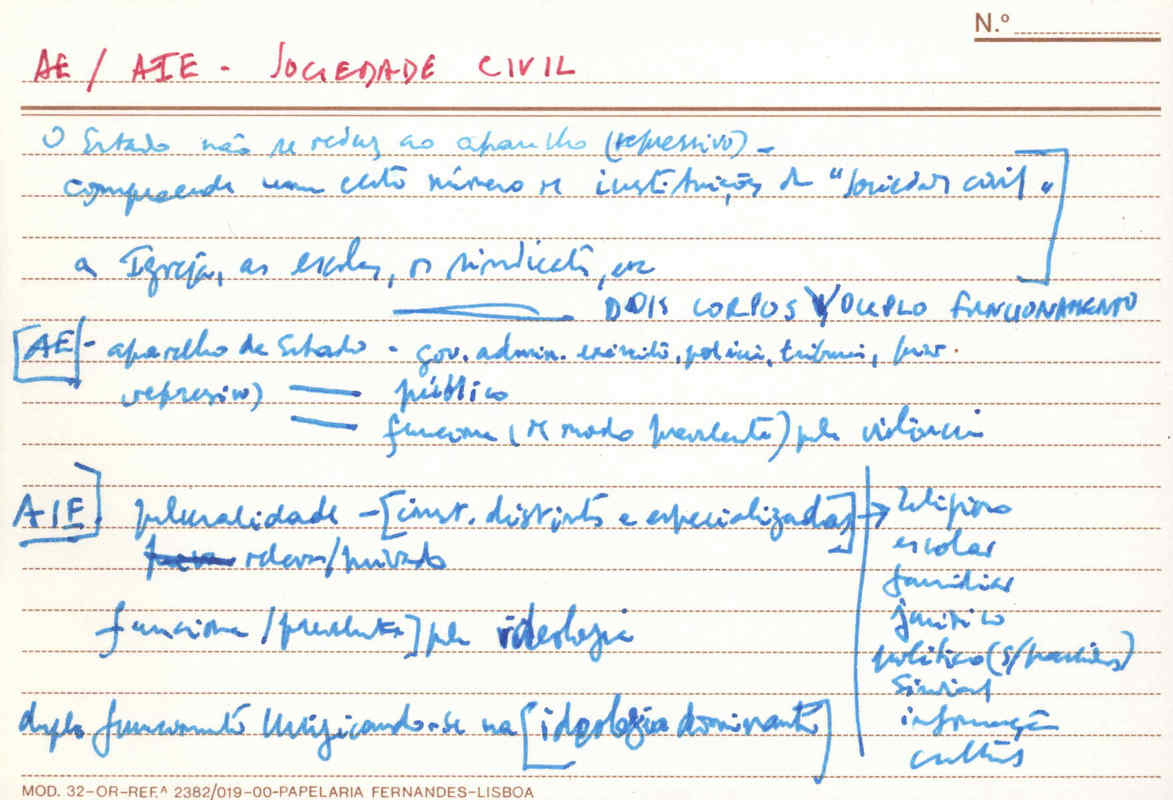 N.º
AE / AIE - SOCIEDADE CIVIL
O Estado não se reduz ao aparelho (repressivo) -
compreende um certo número de instituições da "sociedade civil"
a Igreja, as escolas, os sindicatos, etc
DOIS CORPOS / DUPLO FUNCIONAMENTO
[AE] - aparelho de Estado - gov. admin. exército, polícia, tribunais, pris.
repressivo) — público
— funciona (de modo prevalente) pela violência
AIE] pluralidade - [inst. distintas e especializadas] → religioso
escolar
relevam/privado
familiar
jurídico
funciona /prevalente] pela ideologia
político (s/partidos)
Sindical
duplo funcionamento unificando-se na [ideologia dominante]
informação
cultural
MOD. 32-OR-REF.ª 2382/019-00-PAPELARIA FERNANDES-LISBOA